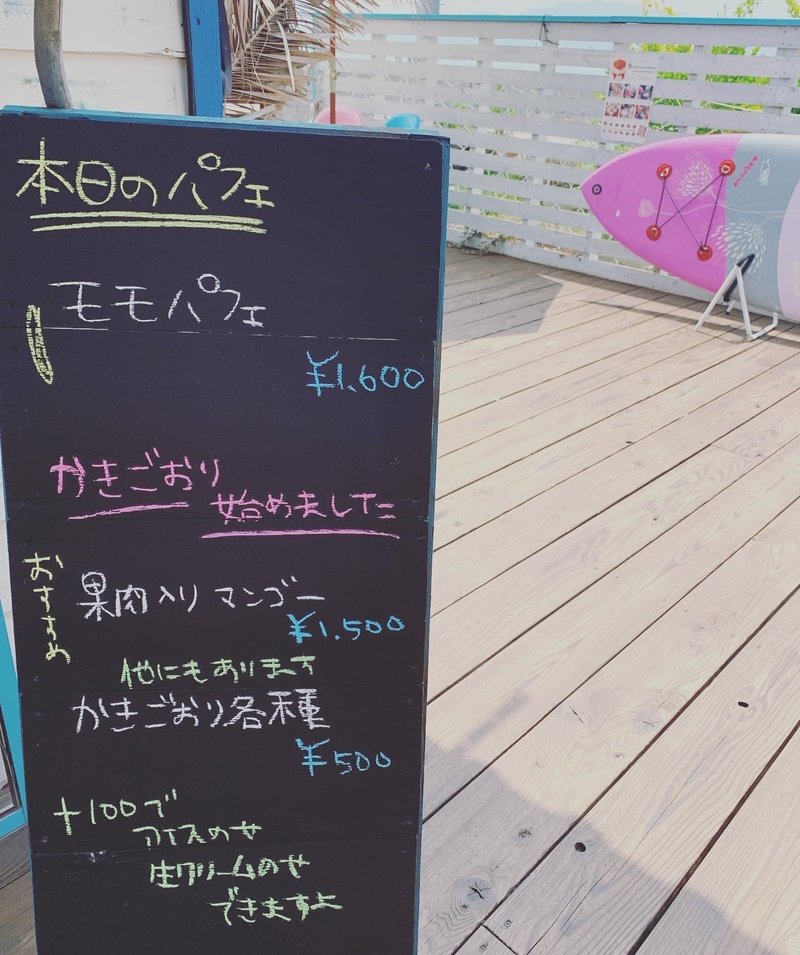 本日のパフェ
モモパフェ
¥1.600
かきごおり
始めました
おすすめ
果肉入りマンゴー
¥1.500
他にもあります
かきごおり各種
¥500
+100で
アイスのせ
生クリームのせ
できますよ